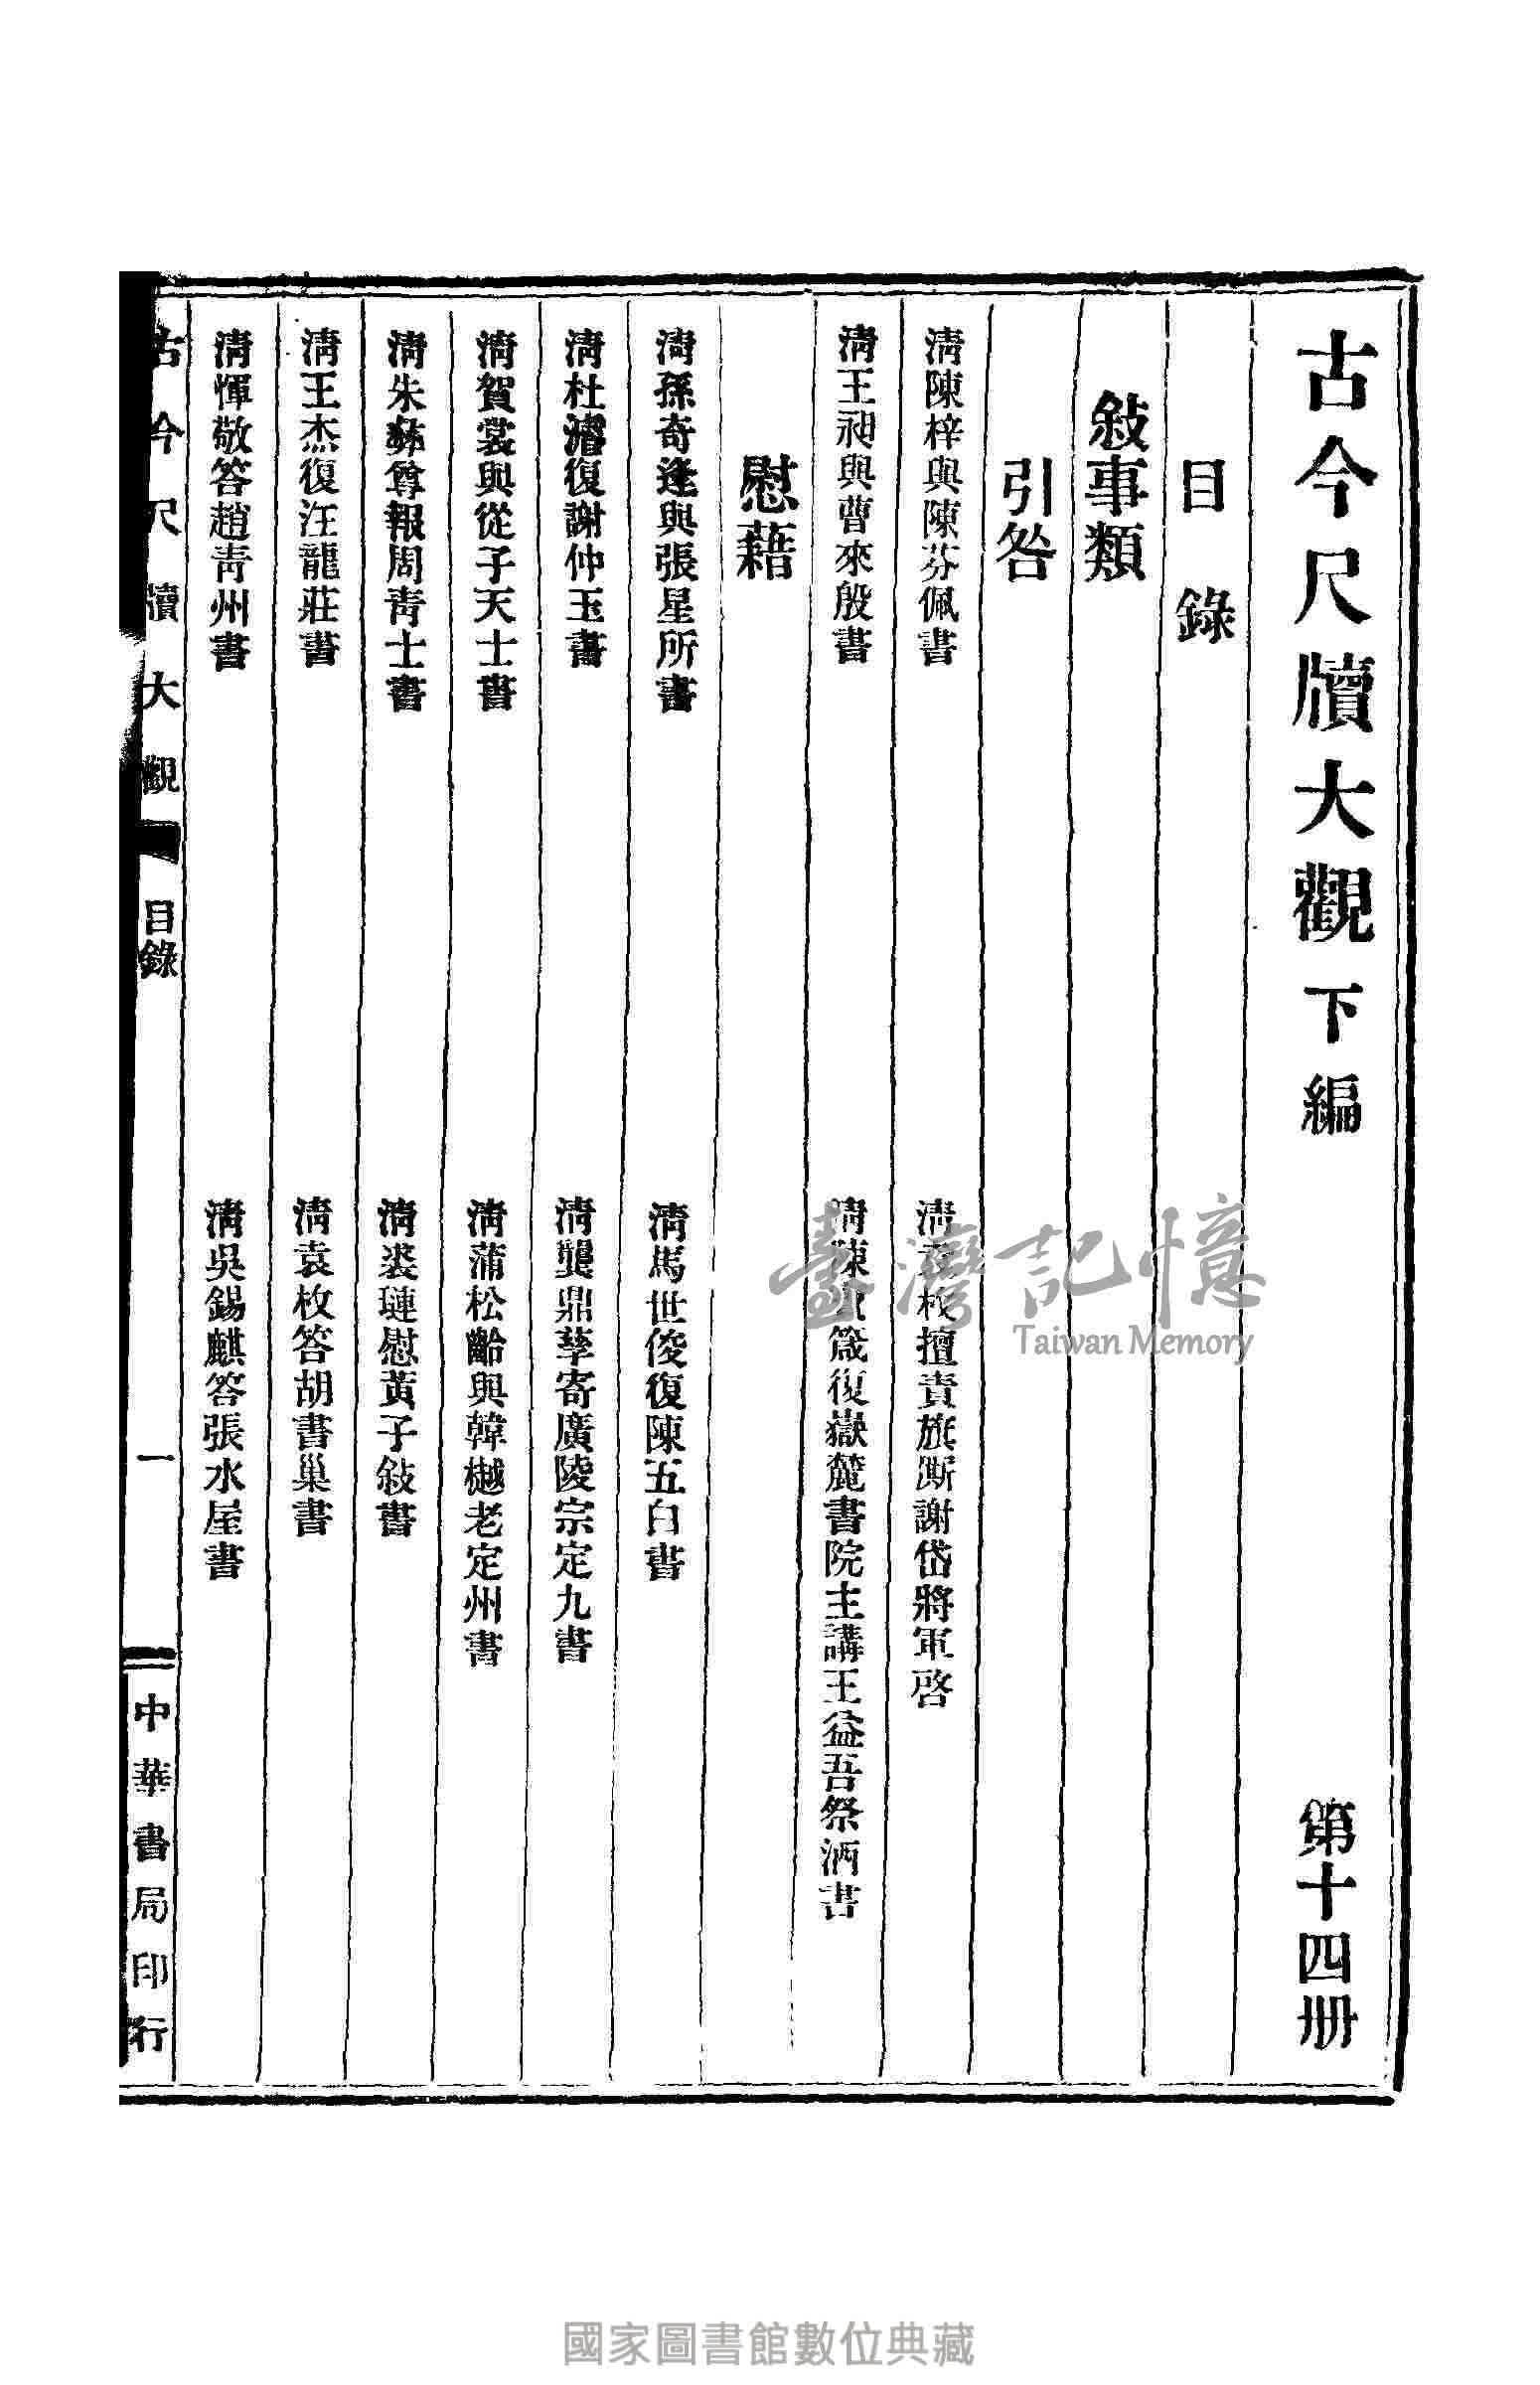 古今尺牘大觀 下編 第十四册
目錄
敍事類
引咎
清陳梓與陳芬佩書 清袁枚擅責旗廝謝岱將軍啓
清王昶與曹來殷書 清陳寶箴復嶽麓書院主講王益吾祭酒書
慰藉
清孫奇逢與張星所書 清馬世俊復陳五白書
清杜濬復謝仲玉書 清龔鼎孳寄廣陵宗定九書
清賀裳與從子天士書 清蒲松齡與韓樾老定州書
清朱彝尊報周青士書 清裘璉慰黃子敍書
清王杰復汪龍莊書 清袁枚答胡書巢書
清惲敬答趙青州書 清吳錫麒答張水屋書
古今尺牘大觀 目錄 一 中華書局印行
臺灣記憶
Taiwan Memory
國家圖書館數位典藏